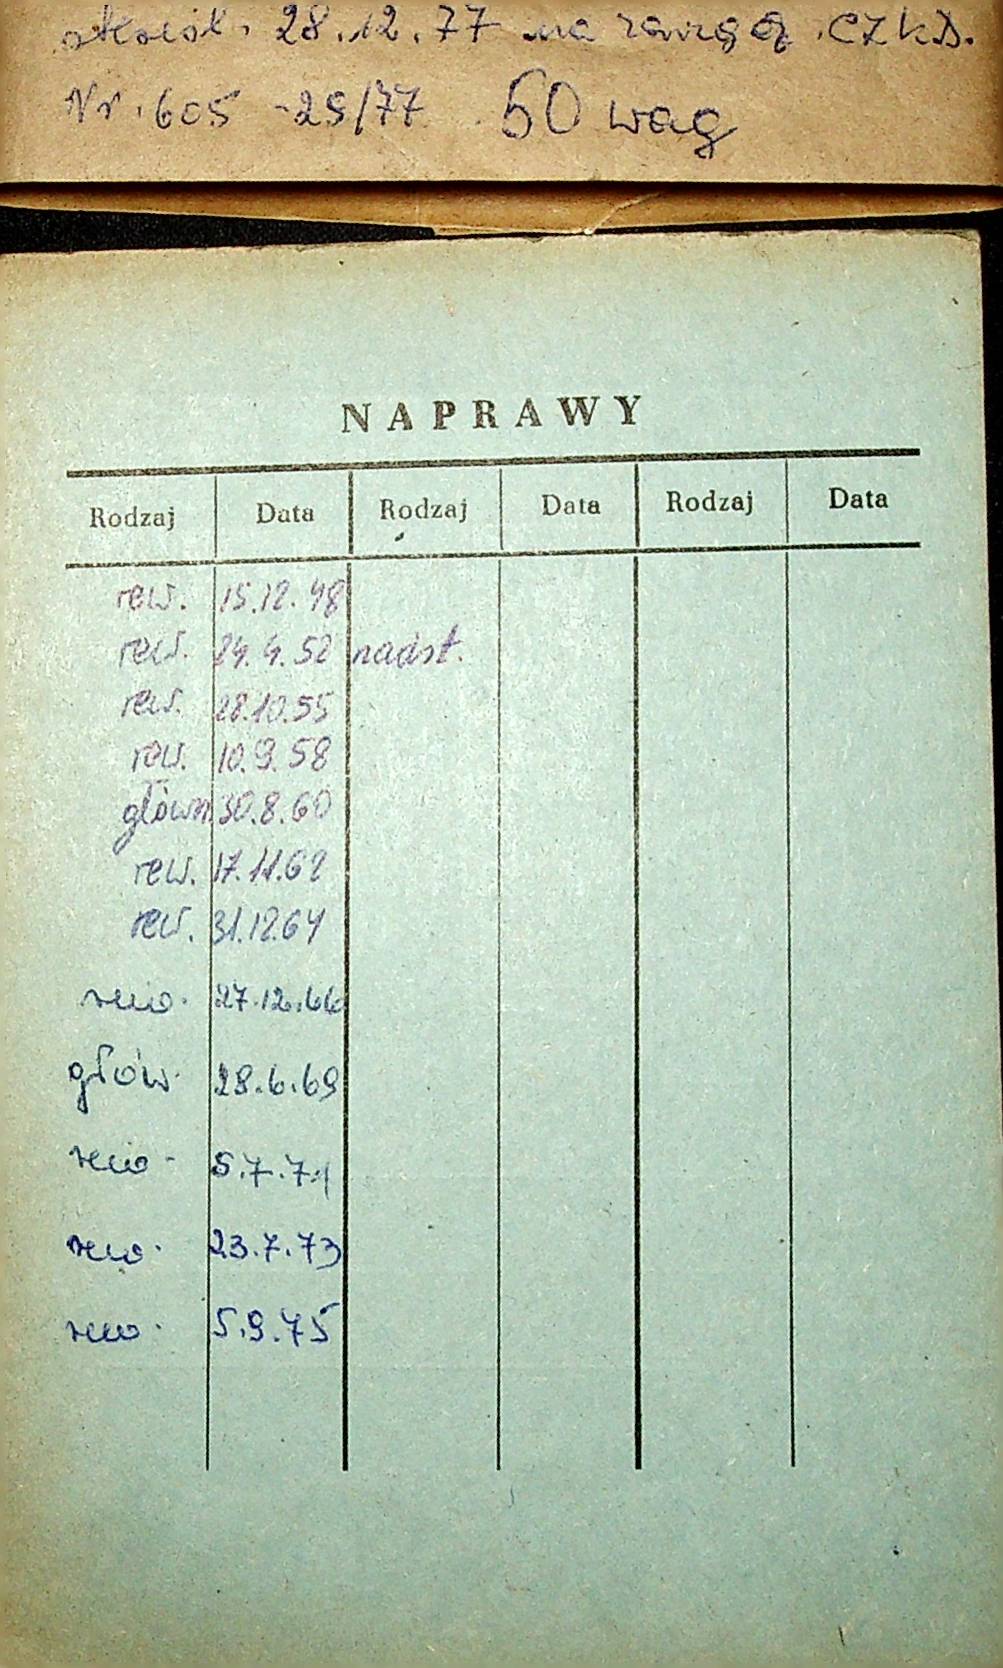 28.12.77 na CZKD.
Nr. 605 -29/77 50 wag
NAPRAWY
Rodzaj Data Rodzaj Data Rodzaj Data
rew. 15.12.48
rew. 24.4.52 nadst.
rew. 28.10.55
rew. 10.9.58
główn. 30.8.60
rew. 17.11.62
rew. 31.12.64
rew. 27.12.66
głów. 28.6.69
rew- 5.7.71
rew. 23.7.73
rew. 5.9.75